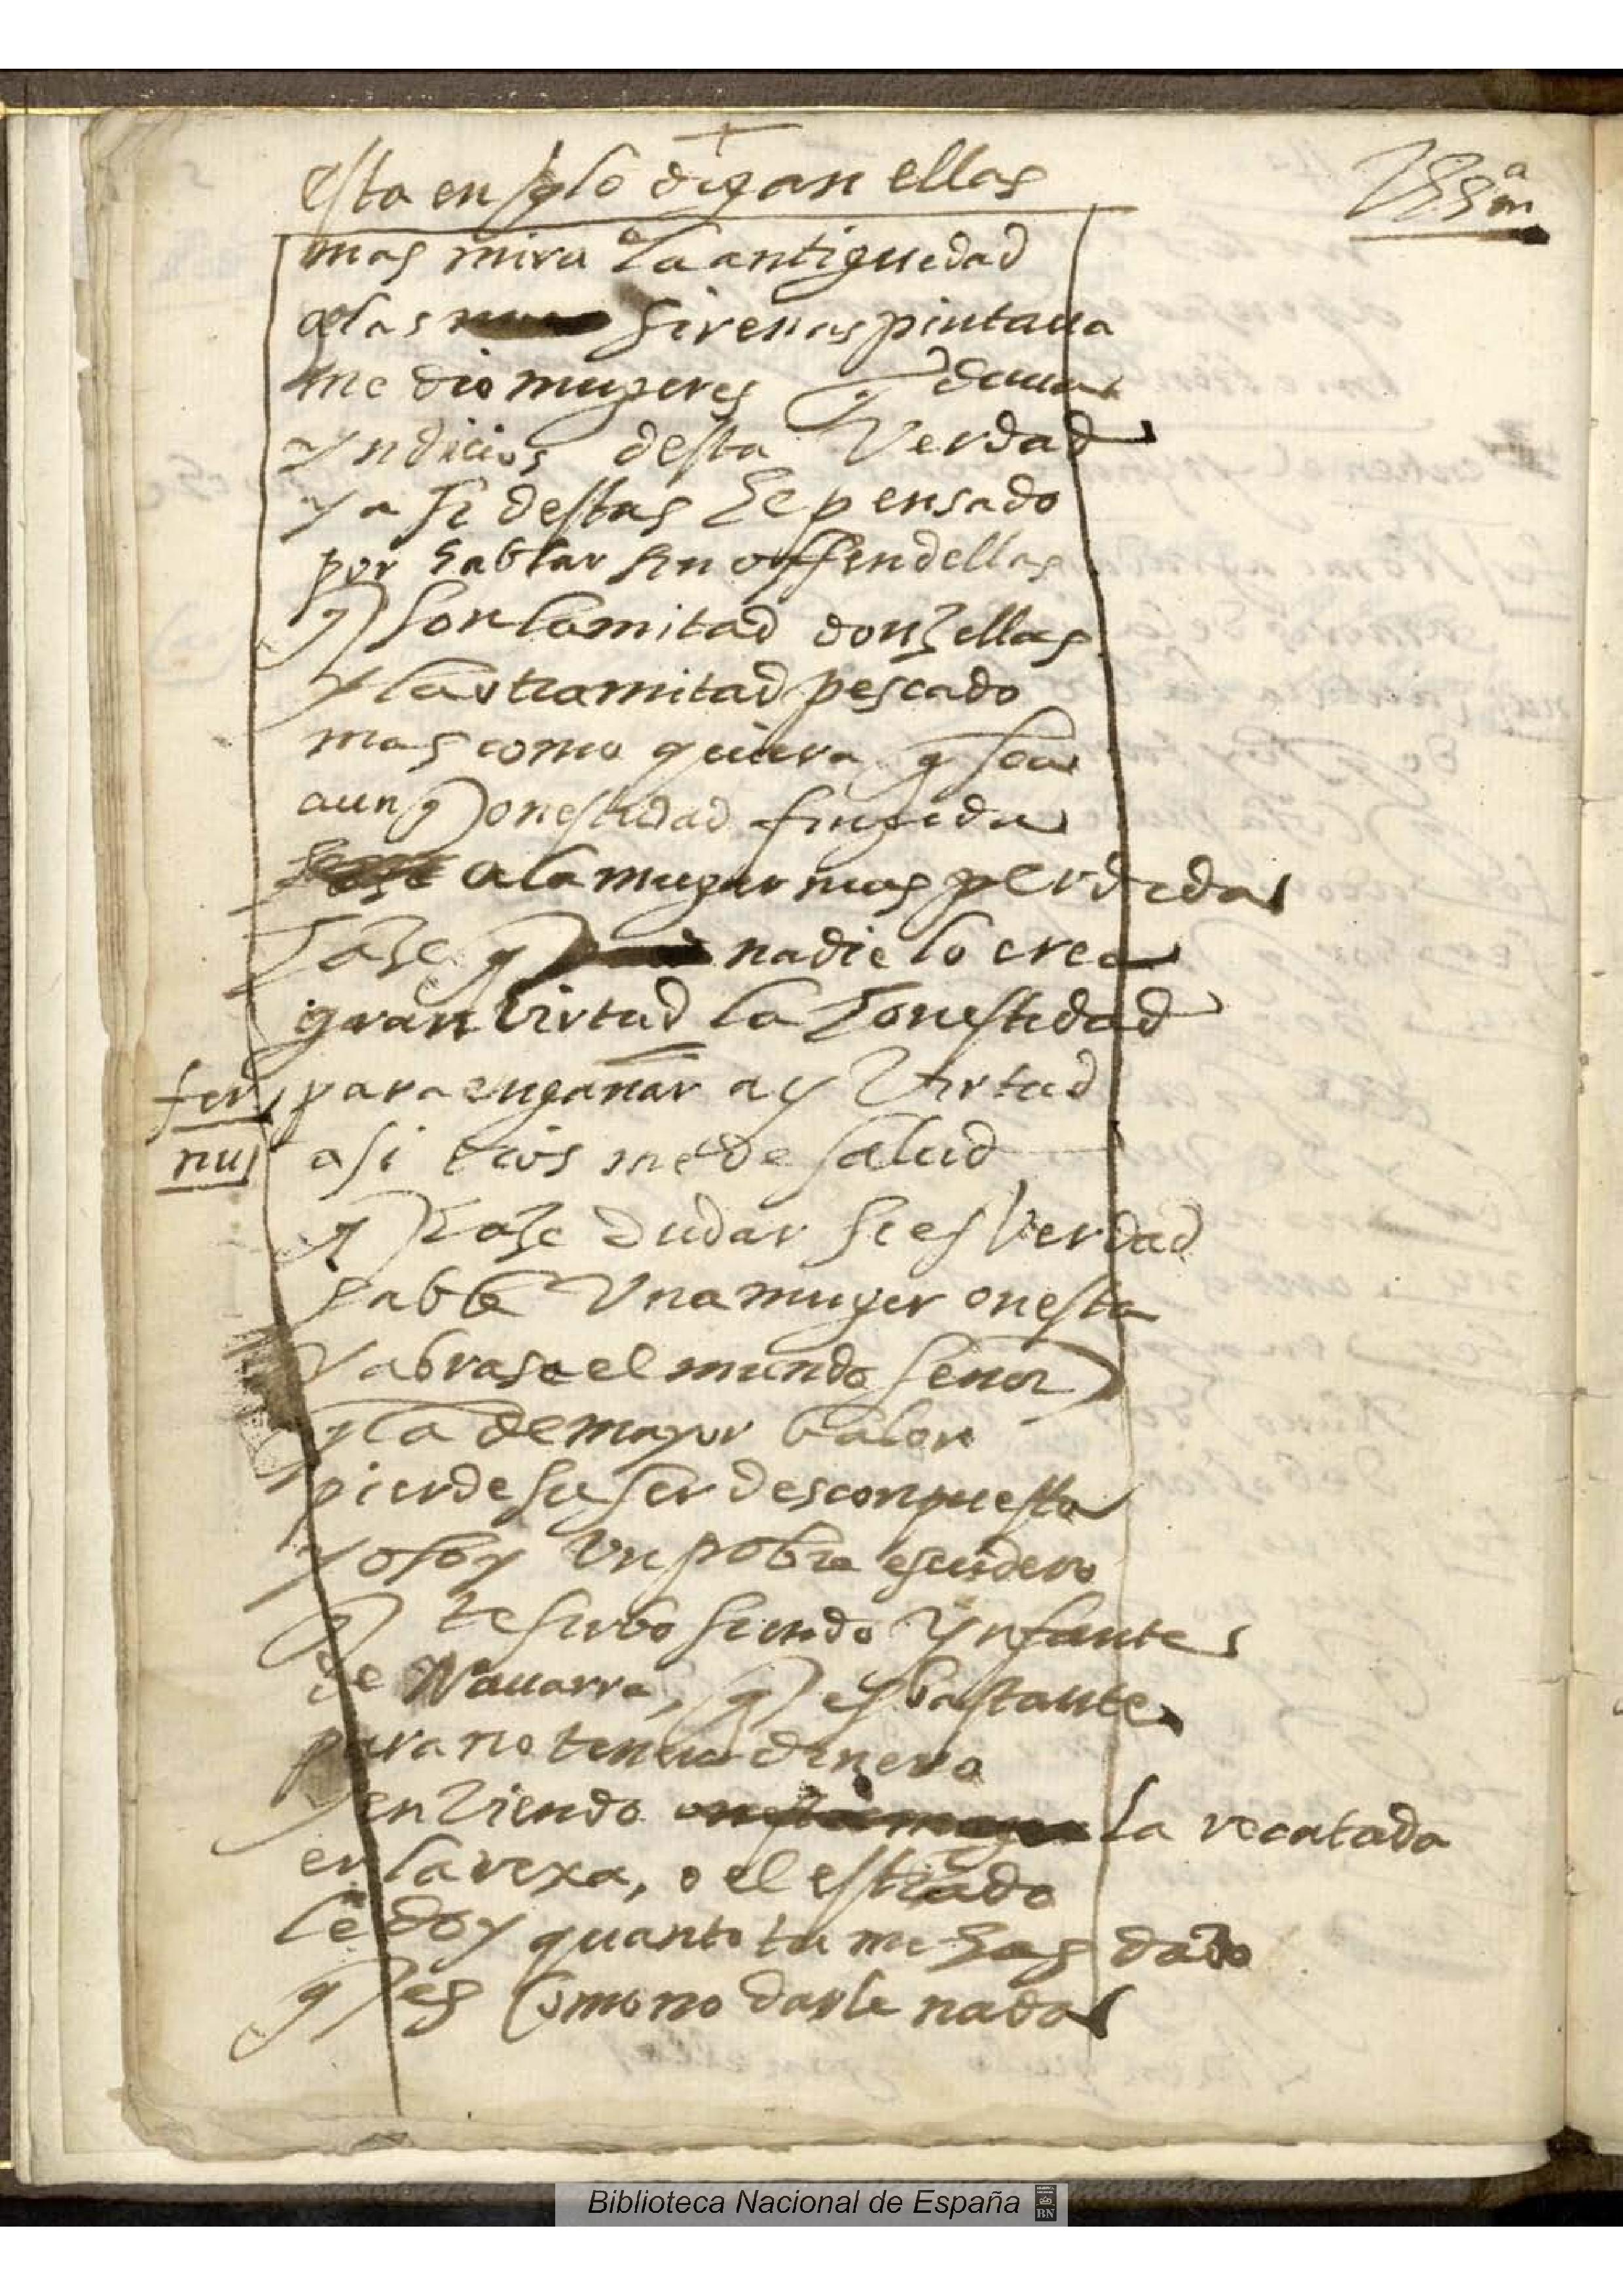 esta en q lo digan ellas
mas mira la antiguedad
a las sirenas pintaua
medio mugeres q daua
yndicios desta Verdad
y asi destas he pensado
por hablar sin offendellas
q son la mitad donzellas
y la otra mitad pescado
mas como quiera q sea
aunq onestidad fingida
a la muger mas perdida
haze q nadie lo crea
gran Virtud la honestidad
fer para engañar ay Virtud
nu asi dios me de salud
q haze dudar si es Verdad
hable Vna muger onesta
y abrase el mundo señor
q la de mayor balor
pierde su ser descompuesta
yo soy Vn pobre escudero
q te sirbo siendo ynfante
de Nauarra, q es bastante
para no tener dinero
y en Viendo la recatada
en la rexa, o el estrado
le doy quanto tu me has dado
q es como no darle nada
Biblioteca Nacional de España
BN